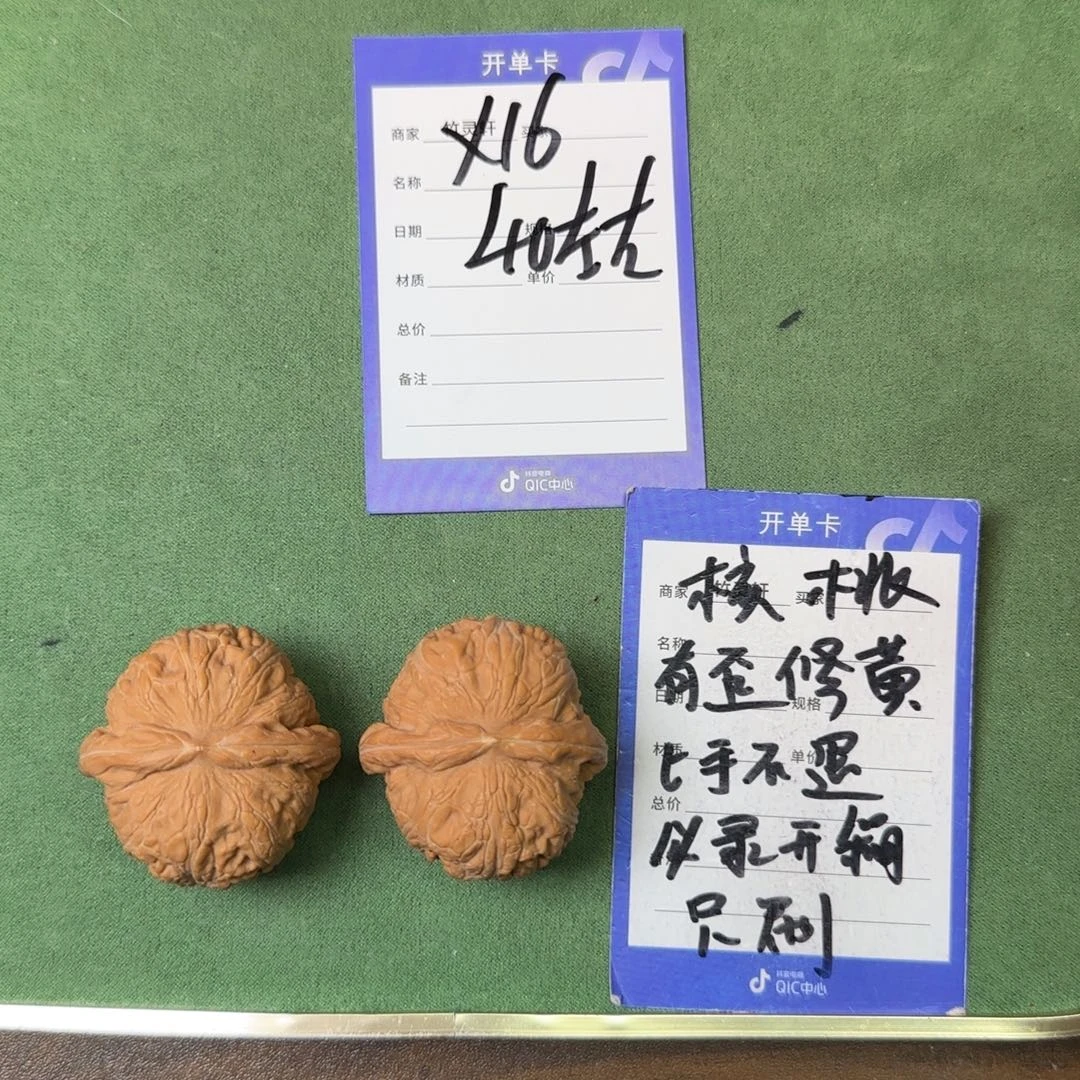 开单卡
商家 竹灵轩 买家
X16
名称
40左右
日期 规格
材质 单价
总价
备注
抖音电商
QIC中心
开单卡
商家 竹灵轩 买家
核桃
名称
有歪修黄
日期 规格
上手不退
材质 单价
总价
必录开箱
只刷
抖音电商
QIC中心